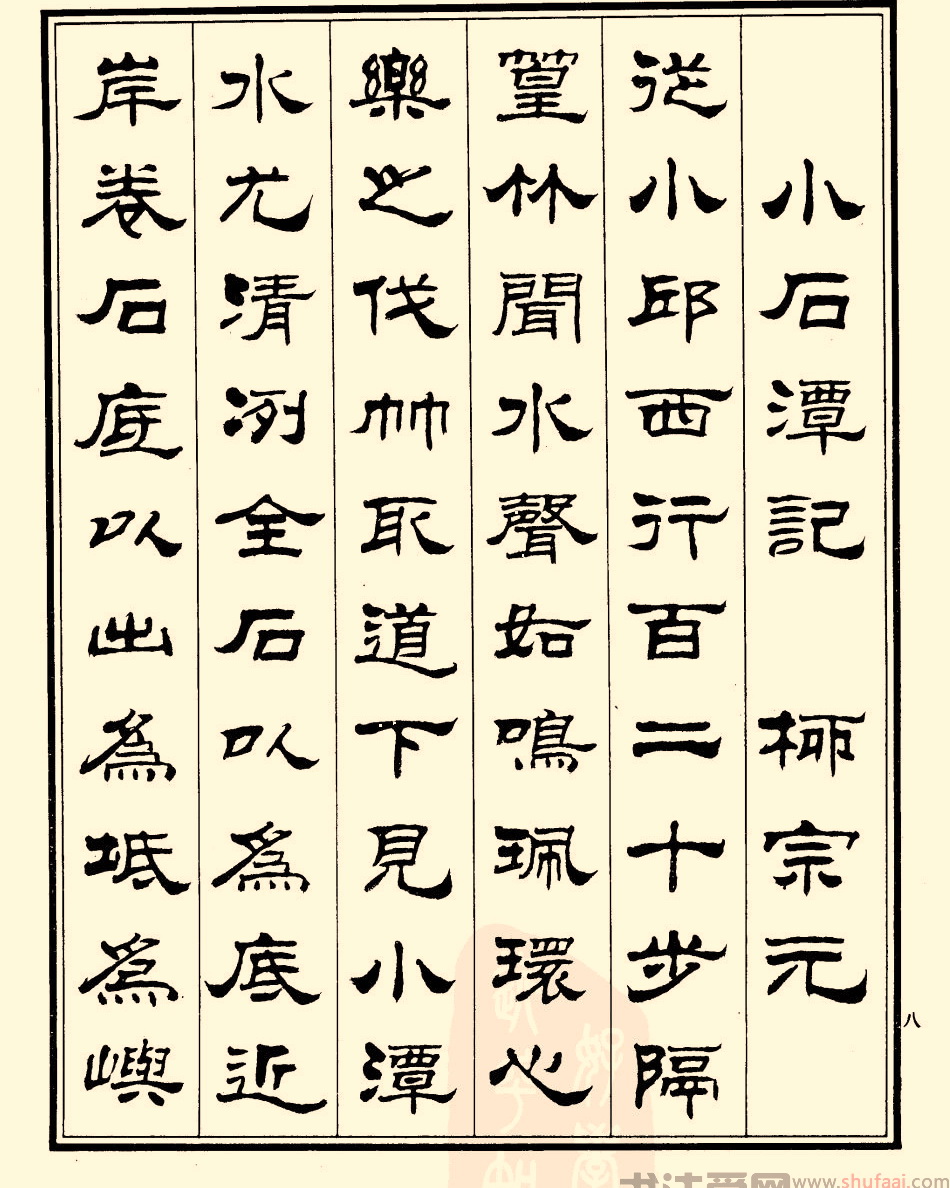 小石潭記 柳宗元
從小邱西行百二十步隔
篁林聞水聲如鳴珮環心
樂之伐竹取道下見小潭
水尤清冽全石以為底近
岸卷石底以出為坻為嶼
八
书法爱网 www.shufaai.com